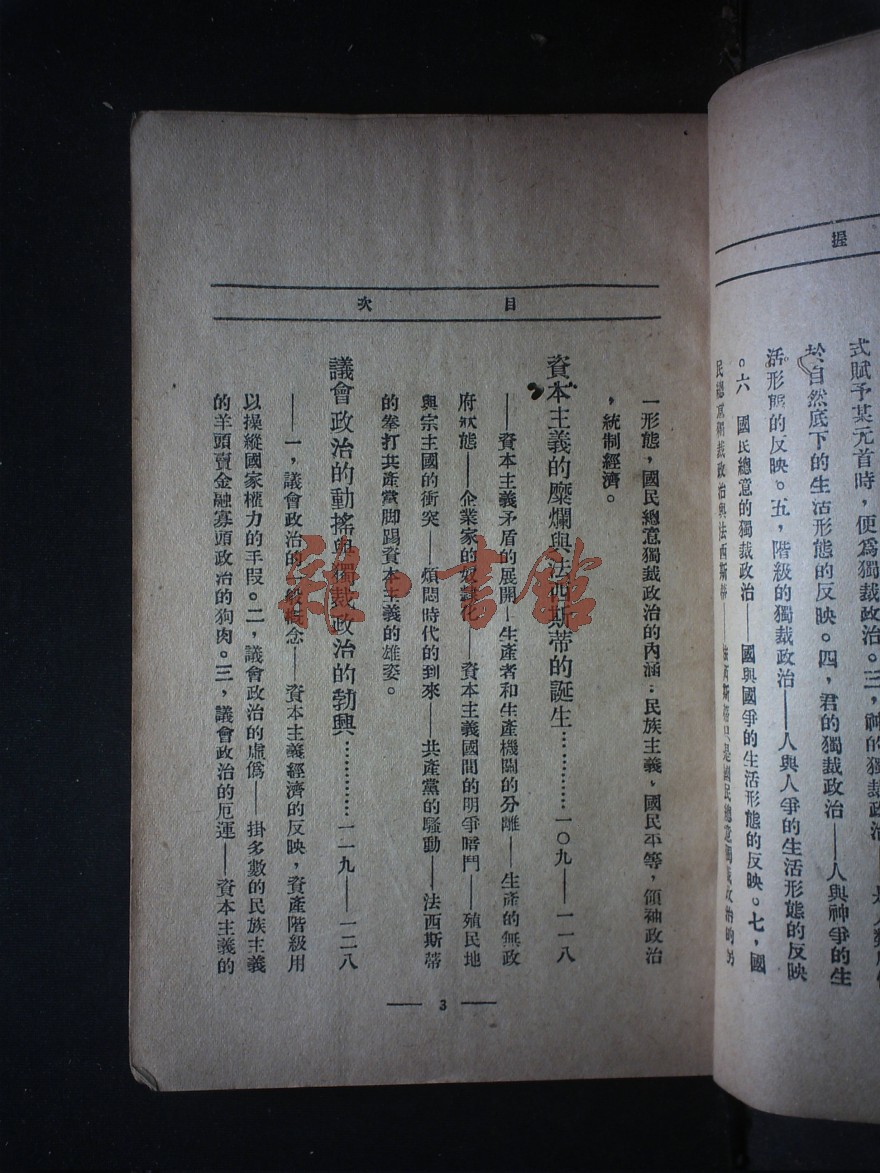 握
式賦予某元首時，便爲獨裁政治。三，神的獨裁政治——是人類屈
於自然底下的生活形態的反映。四，君的獨裁政治——人與神爭的生
活形態的反映。五，階級的獨裁政治——人與人爭的生活形態的反映
。六 國民總意的獨裁政治——國與國爭的生活形態的反映。七，國
民總意獨裁政治與法西斯蒂——法西斯蒂只是國民總意獨裁政治的另
目次
一形態，國民總意獨裁政治的內涵：民族主義，國民平等，領袖政治
，統制經濟。
資本主義的糜爛與法西斯蒂的誕生…………一〇九——一一八
——資本主義矛盾的展開——生產者和生產機關的分離——生產的無政
府狀態——企業家的奴隸化——資本主義國間的明爭暗鬥——殖民地
與宗主國的衝突——煩悶時代的到來——共產黨的騷動——法西斯蒂
的拳打共產黨脚踢資本主義的雄姿。
議會政治的動搖與獨裁政治的勃興…………一一九——一二八
——一，議會政治的一般概念——資本主義經濟的反映，資產階級用
以操縱國家權力的手段。二，議會政治的虛僞——掛多數的民族主義
的羊頭賣金融寡頭政治的狗肉。三，議會政治的厄運——資本主義的
— 3 —
雜·書館